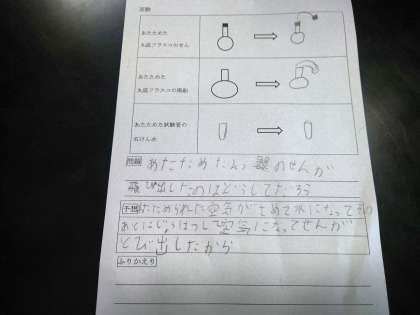 実験
あたためた
丸底フラスコのせん
あたためた
丸底フラスコの機動
あたためた試験管の
石けん水
問題 あたためたら のせんが
飛び出したのはどうしてだろう
予想 あたためられた空気がさめて水になってその
あとにじょうはつして空気になってせんが
とび出したから
ふりかえり